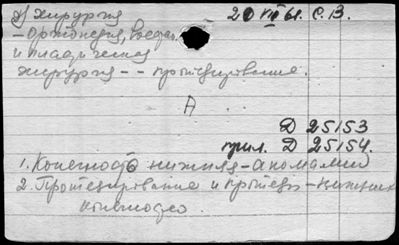 2) Хирургия 20 VII 61. С.В.
– Ортопедия,
и пластическая
хирургия – – протезирование.
А
Д 25153
прил. Д 25154.
1. Конечность нижняя – аномалии
2. Протезирование и протезы – нижних
конечность.